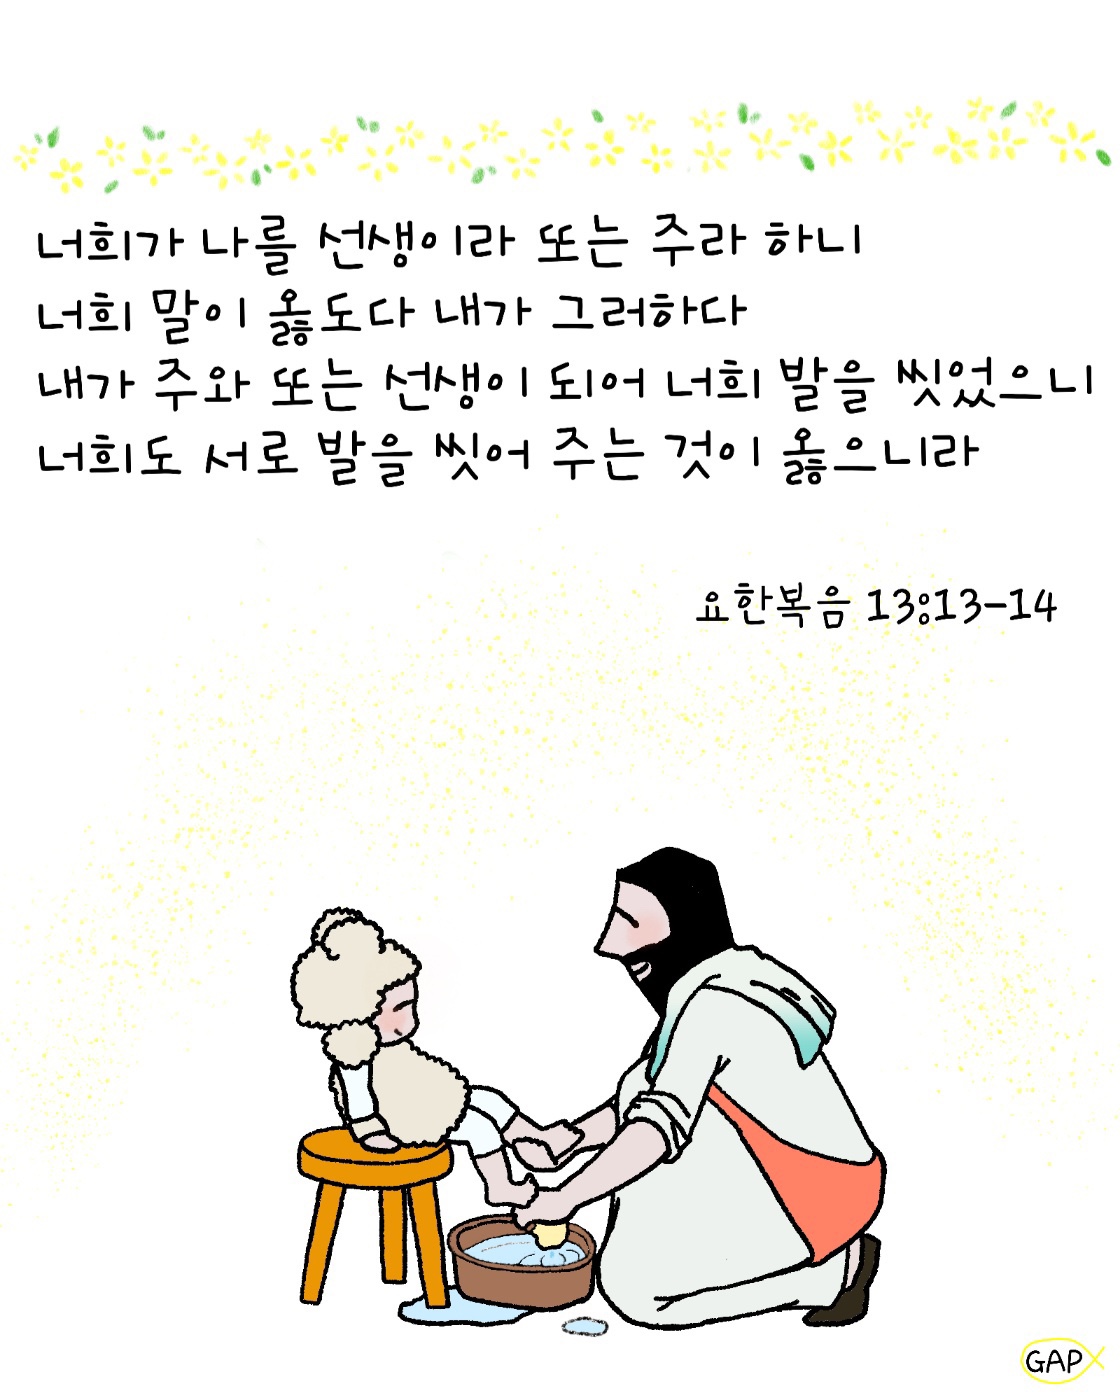 너희가 나를 선생이라 또는 주라 하니
너희 말이 옳도다 내가 그러하다
내가 주와 또는 선생이 되어 너희 발을 씻었으니
너희도 서로 발을 씻어 주는 것이 옳으니라
요한복음 13:13-14
GAP